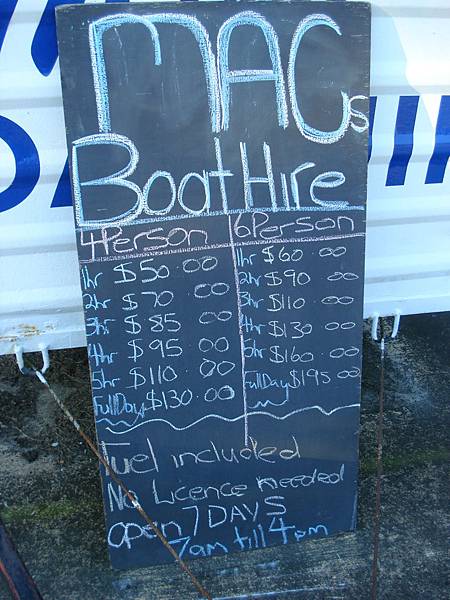 MACs
Boat Hire
4 Person 6 Person
1hr $50.00 1hr $60.00
2hr $70.00 2hr $90.00
3hr $85.00 3hr $110.00
4hr $95.00 4hr $130.00
5hr $110.00 5hr $160.00
Full Day $130.00 Full Day $195.00
Fuel included
No Licence needed
open 7 DAYS
7am till 4pm